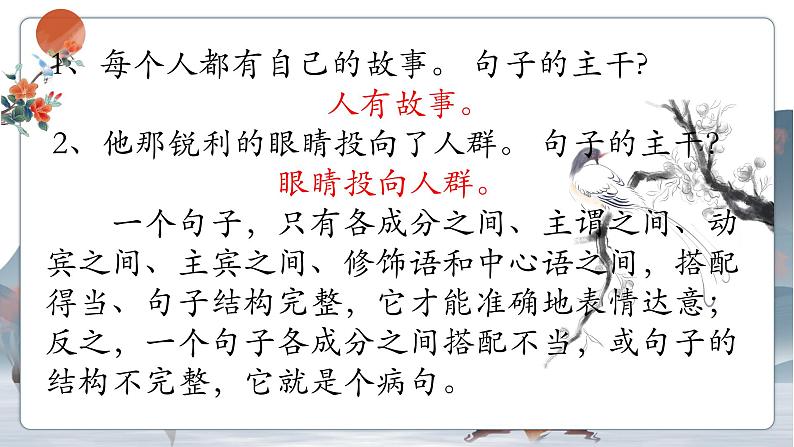 1、每个人都有自己的故事。 句子的主干?
人有故事。
2、他那锐利的眼睛投向了人群。 句子的主干?
眼睛投向人群。
一个句子，只有各成分之间、主谓之间、动
宾之间、主宾之间、修饰语和中心语之间，搭配
得当、句子结构完整，它才能准确地表情达意；
反之，一个句子各成分之间搭配不当，或句子的
结构不完整，它就是个病句。